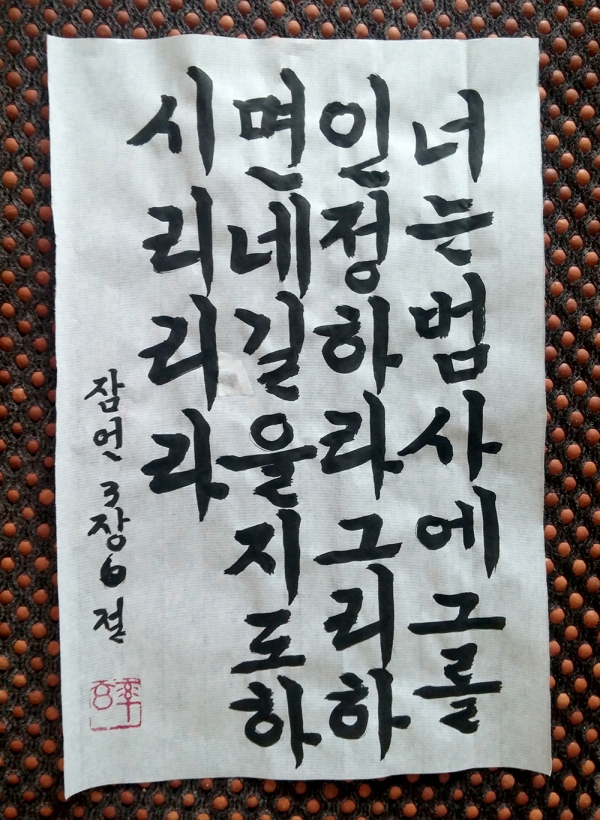 너는범사에그를
인정하라그리하
면네길을지도하
시리리라
잠언 3장6절